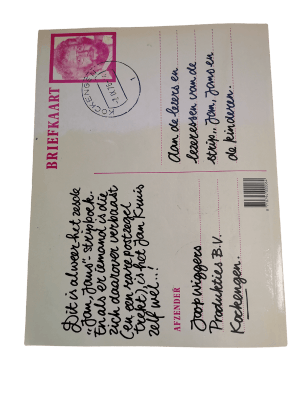 BRIEFKAART
KOCKENGEN
Dit is alweer het zesde
„Jan, Jans"-stripboek.
En als er iemand is die
zich daarover verbaast
(en een rare postzegel
trekt), is het Jan Kruis
zelf wel...!
AFZENDER
Joop Wiggers
Produkties B.V.
Kockengen.
Aan de lezers en
lezeressen van de
strip „Jan, Jans en
de kinderen.